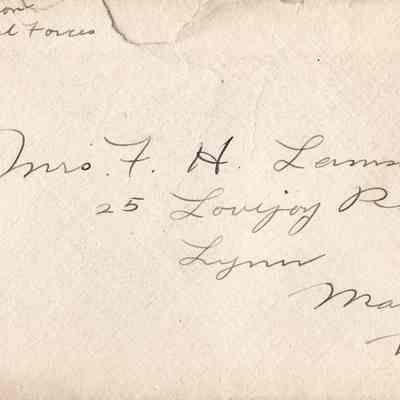 Forces
Mrs. F. H.
25 Lovejoy
Lynn
Ma